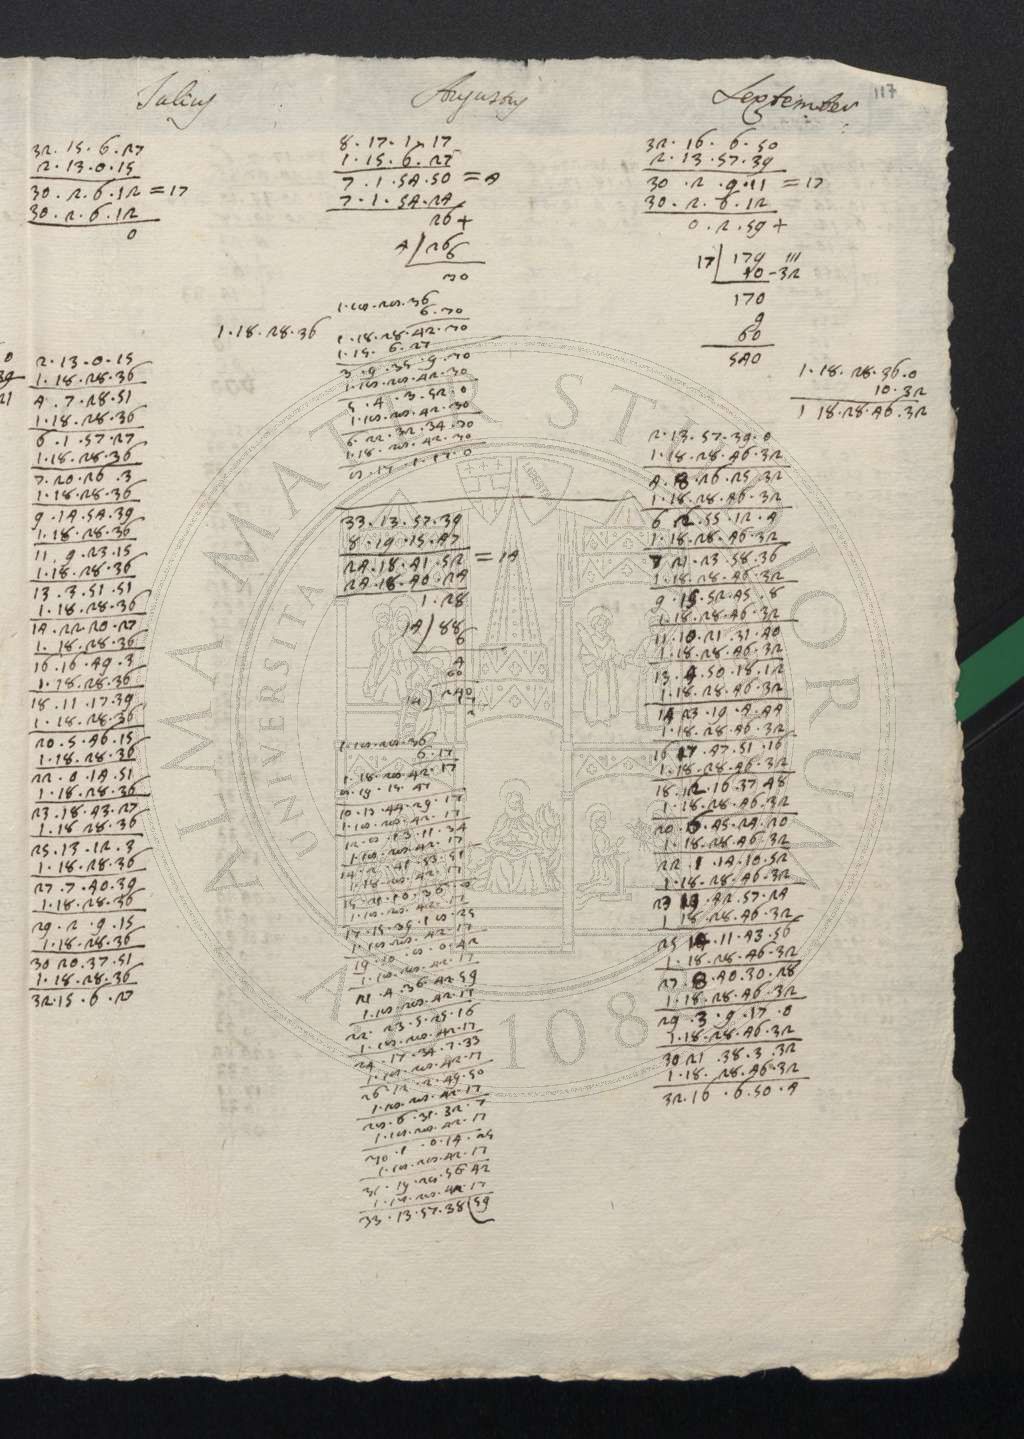 117
Julius
32. 15. 6. 27
2. 13. 0. 15
30. 2. 6. 12 = 17
30. 2. 6. 12
0
1. 18. 28. 36
2. 13. 0. 15
1. 18. 28. 36
4. 7. 28. 51
1. 18. 28. 36
6. 1. 57. 27
1. 18. 28. 36
7. 20. 26. 3
1. 18. 28. 36
9. 14. 54. 39
1. 18. 28. 36
11. 9. 23. 15
1. 18. 28. 36
13. 3. 51. 51
1. 18. 28. 36
14. 22. 20. 27
1. 18. 28. 36
16. 16. 49. 3
1. 18. 28. 36
18. 11. 17. 39
1. 18. 28. 36
20. 5. 46. 15
1. 18. 28. 36
22. 0. 14. 51
1. 18. 28. 36
23. 18. 43. 27
1. 18. 28. 36
25. 13. 12. 3
1. 18. 28. 36
27. 7. 40. 39
1. 18. 28. 36
29. 2. 9. 15
1. 18. 28. 36
30 20. 37. 51
1. 18. 28. 36
32. 15. 6. 27
Augustus
8. 17. 1. 17
1. 15. 6. 27
7. 1. 54. 50 = 4
7. 1. 54. 24
26 +
4 / 26
6
30
1. 18. 28. 36
6. 30
1. 18. 28. 42. 30
1. 15. 6. 27
3. 9. 35. 9. 30
1. 18. 28. 42. 30
5. 4. 3. 52. 0
1. 18. 28. 42. 30
6. 22. 32. 34. 30
1. 18. 28. 42. 30
8. 17. 1. 17. 0
33. 13. 57. 39
8. 19. 15. 47
24. 18. 41. 52 = 14
24. 18. 40. 24
1. 28
14 / 88
6
4
60
14) 240
1. 18. 28. 36
6. 17
1. 18. 28. 42. 17
8. 19. 15. 47
10. 13. 44. 29. 17
1. 18. 28. 42. 17
12. 8. 13. 11. 34
1. 18. 28. 42. 17
14. 2. 41. 53. 51
1. 18. 28. 42. 17
15. 21. 10. 36. 8
1. 18. 28. 42. 17
17. 15. 39. 18. 25
1. 18. 28. 42. 17
19. 10. 8. 0. 42
1. 18. 28. 42. 17
21. 4. 36. 42. 59
1. 18. 28. 42. 17
22. 23. 5. 25. 16
1. 18. 28. 42. 17
24. 17. 34. 7. 33
1. 18. 28. 42. 17
26. 12. 2. 49. 50
1. 18. 28. 42. 17
28. 6. 31. 32. 7
1. 18. 28. 42. 17
30. 1. 0. 14. 25
1. 18. 28. 42. 17
31. 19. 28. 56 42
1. 18. 28. 42. 17
33. 13. 57. 38 (59
September
32. 16. 6. 50
2. 13. 57. 39
30. 2. 9. 11 = 17
30. 2. 6. 12
0. 2. 59 +
17 | 179 III
10 - 32
170
9
60
540
1. 18. 28. 36. 0
10. 32
1 18. 28. 46. 32
2. 13. 57. 39. 0
1. 18. 28. 46. 32
4. 8. 26. 25. 32
1. 18. 28. 46. 32
6 2. 55. 12. 4
1. 18. 28. 46. 32
7 21. 23. 58. 36
1. 18. 28. 46. 32
9. 15. 52. 45. 8
1. 18. 28. 46. 32
11. 10. 21. 31. 40
1. 18. 28. 46. 32
13. 4. 50. 18. 12
1. 18. 28. 46. 32
14 23. 19. 4. 44
1. 18. 28. 46. 32
16 17. 47. 51. 16
1. 18. 28. 46. 32
18. 12. 16. 37 48
1. 18. 28. 46. 32
20. 6. 45. 24. 20
1. 18. 28. 46. 32
22. 1 14. 10. 52
1. 18. 28. 46. 32
23 19. 42. 57. 24
1 18. 28. 46. 32
25 14. 11. 43. 56
1. 18. 28. 46. 32
27. 8. 40. 30. 28
1. 18. 28. 46. 32
29. 3. 9. 17. 0
1. 18. 28. 46. 32
30 21. 38. 3. 32
1. 18. 28. 46. 32
32. 16. 6. 50. 4
ALMA MATER STUDIORUM
UNIVERSITA
A.D. 1088